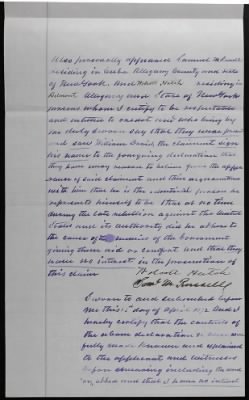 Also personally appeared Samuel M Russell
residing in Cuba Allegany County and state
of New York. And Wolcott Hatch residing in
Belmont Allegany and State of New York
persons whom I certify to be respectable
and entitled to credit and who being by
me duly sworn say that they were present
and saw William David the claimant sign
his name to the foregoing declaration that
they have every reason to believe from the appear
ance of said claimant and their acquaintance
with him that he is the identical person he
represents himself to be that at no time
during the late rebellion against the United
States and its authority did he adhere to
the cause of the enemies of the Government
giving them aid or comfort and that they
have no interest in the prosecution of
this claim
Hatch
Saml M Russell
Sworn to and subscribed before
me this day of April and I
hereby certify that the contents of
the above declaration &c were
fully made known and explained
to the applicant and witnesses
before swearing including the
and that I have no interest